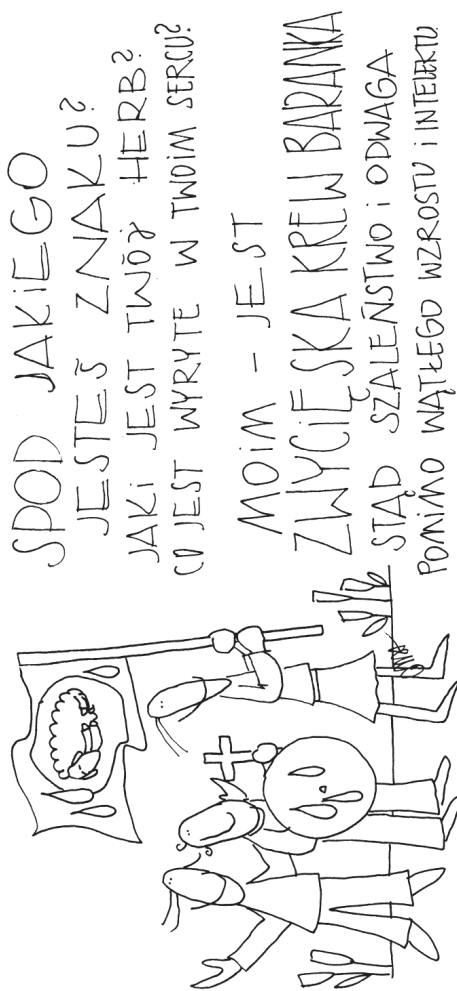 SPOD JAKIEGO
JESTEŚ ZNAKU?
JAKI JEST TWÓJ HERB?
CO JEST WYRYTE W TWOIM SERCU?
MOIM – JEST
ZWYCIĘSKA KREW BARANKA
STĄD SZALEŃSTWO i ODWAGA
POMIMO WĄTŁEGO WZROSTU i INTELEKTU